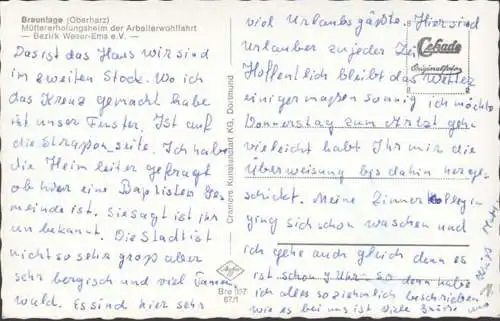 Braunlage (Oberharz)
Müttererholungsheim der Arbeiterwohlfahrt
— Bezirk Weser-Ems e.V. —
Das ist das Haus wir sind
im zweiten Stock. Wo ich
das Kreuz gemacht habe
ist unser Fenster. Ist auf
die Strassenseite. Ich habe
die Heimleiter gefragt
ob hier eine Baptisten Ge
meinde ist. Sie sagt ist ihr
unbekannt. Die Stadt ist
nicht so sehr groß aber
sehr bergisch und viel Tannen
wald. Es sind hier sehr
Cramers Kunstanstalt KG, Dortmund
Bre 107
67/1
viel Urlaubsgäßte. Hier sind
Urlauber zu jeder Zei
Cekade
Originalfoto
Hoffentlich bleibt das Wetter
einigermaßen sonnig ich möchte
Donnerstag zum Artzt gehn
vieleicht habt Ihr mir die
Überweisung bis dahin herge
schickt. Meine Zimmer Kollegin
ging sich schon waschen und
ich gehe auch gleich denn es
ist schon 7 Uhr. So denn habe
ich alles so ziemlich beschrieben
wie es bei uns ist viele Grüße